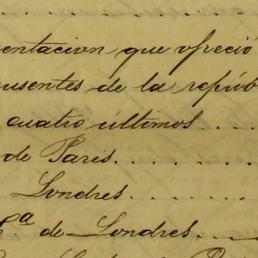 entacion que ofreció
usentes de la repúb
cuatro últimos . . . .
de Paris. . . . . . . .
Londres. . . . . . .
C.ª de Londres. . . .